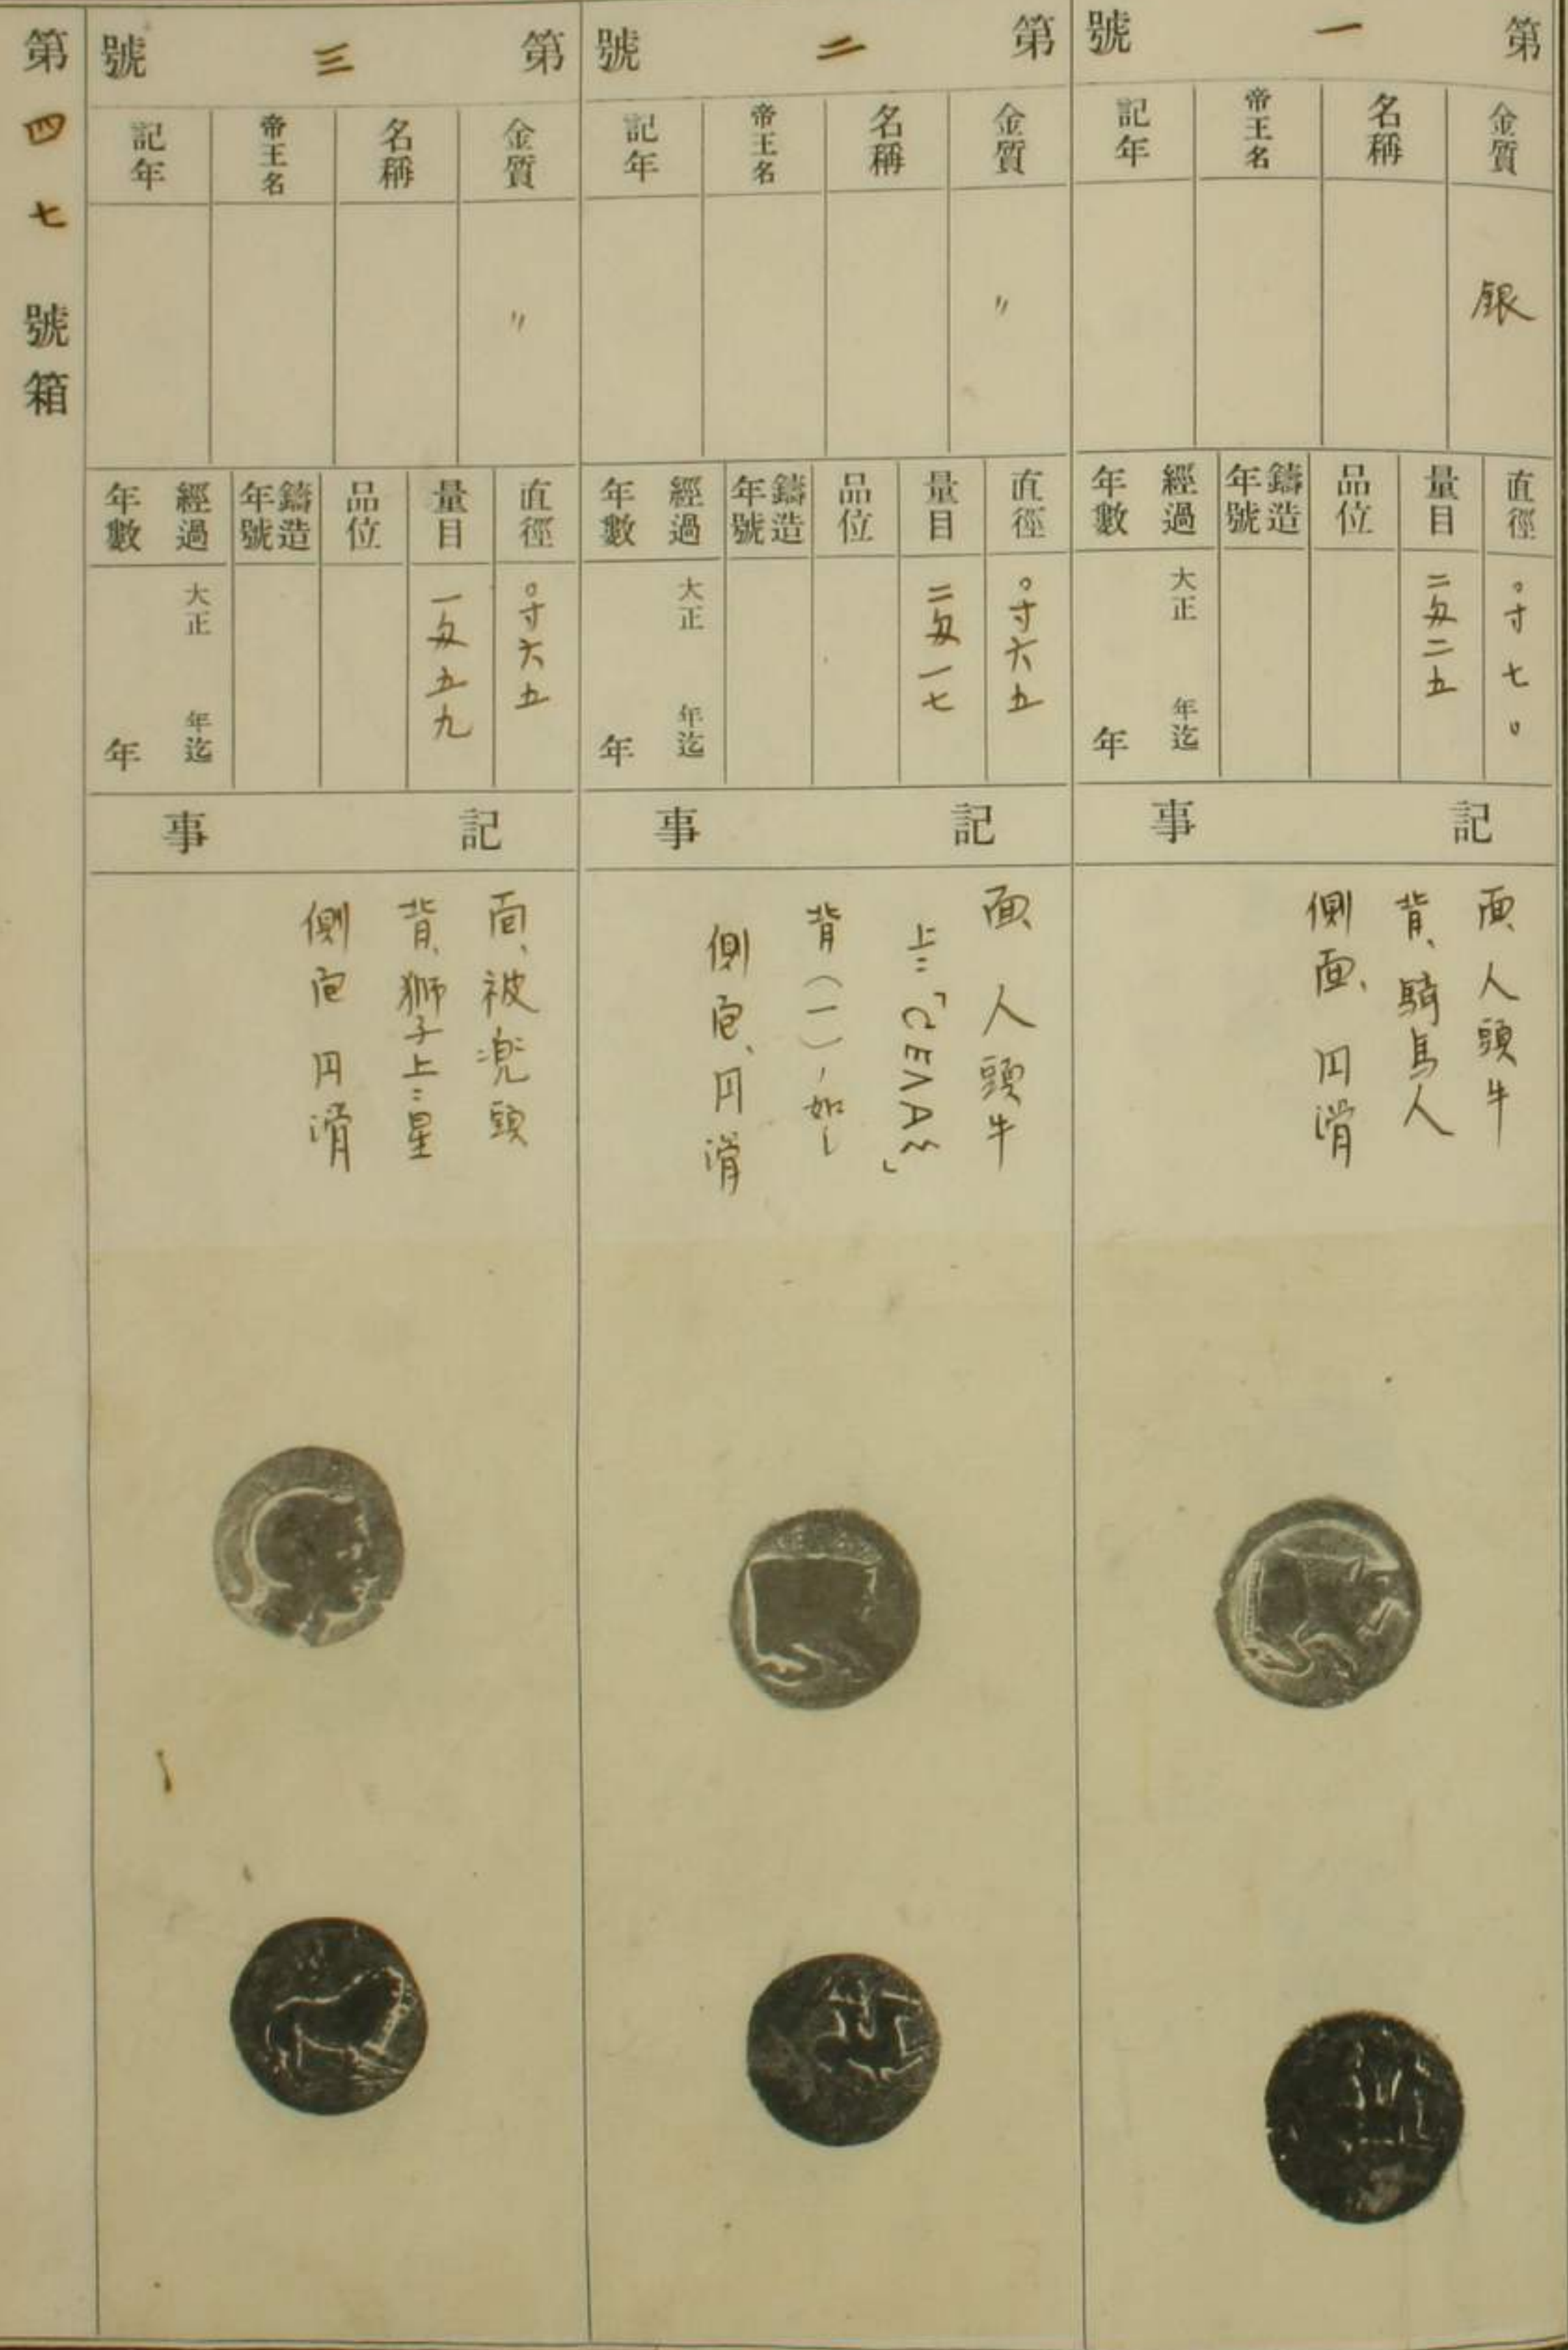 第一號
金質
銀
名稱
帝王名
記年
直徑
〇寸七〇
量目
二匁二五
品位
鑄造年號
經過年數
大正 年迄
年
記事
面、人頭牛
背、騎馬人
側面、円滑
第二號
金質
〃
名稱
帝王名
記年
直徑
〇寸六五
量目
二匁一七
品位
鑄造年號
經過年數
大正 年迄
年
記事
面、人頭牛
上ニ「CEΛA
背(一)ノ如シ
側面、円滑
第三號
金質
〃
名稱
帝王名
記年
直徑
〇寸六五
量目
一匁五九
品位
鑄造年號
經過年數
大正 年迄
年
記事
面、被兜頭
背、獅子上ニ星
側面 円滑
第四七號箱